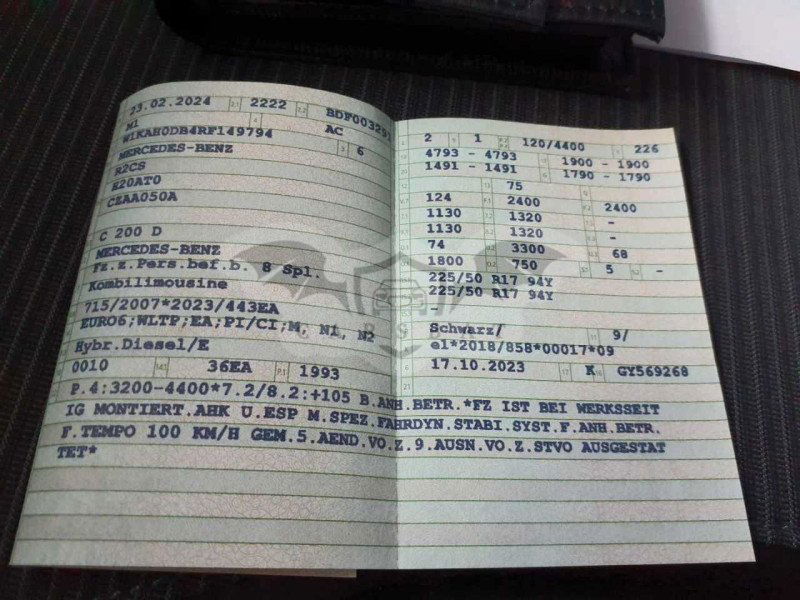 23.02.2024 2222 BDF003291
M1 AC
W1KAH0DB4RF149794 6
MERCEDES-BENZ
R2CS
H20AT0
CZAA050A
C 200 D
MERCEDES-BENZ
Fz.z.Pers.bef.b. 8 Spl.
Kombilimousine
715/2007*2023/443EA
EURO6;WLTP;EA;PI/CI;M, N1, N2
Hybr.Diesel/E
0010 36EA 1993
2 1 120/4400 226
4793 - 4793 1900 - 1900
1491 - 1491 1790 - 1790
75
124 2400 2400
1130 1320 -
1130 1320 -
74 3300 68
1800 750 5 -
225/50 R17 94Y
225/50 R17 94Y
Schwarz/ 9/
e1*2018/858*00017*09
17.10.2023 K GY569268
P.4:3200-4400*7.2/8.2:+105 B.ANH.BETR.*FZ IST BEI WERKSSEIT
IG MONTIERT.AHK U.ESP M.SPEZ.FAHRDYN.STABI.SYST.F.ANH.BETR.
F.TEMPO 100 KM/H GEM.5.AEND.VO.Z.9.AUSN.VO.Z.STVO AUSGESTAT
TET*